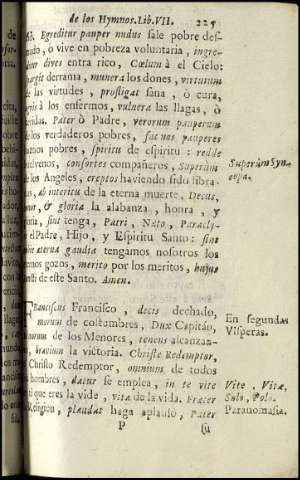 de los Hymnos. Lib. VII. 225
Egreditur pauper nudus sale pobre des-
nudo, ò vive en pobreza voluntaria, ingre-
dives entra rico, Cœlum à el Cielo:
derrama, munera los dones, virtutum
de las virtudes, profligat sana, ò cura,
à los enfermos, vulnera las llagas, ò
Pater ò Padre, verorum pauperum
los verdaderos pobres, fac nos pauperes
pobres, spiritu de espiritu: redde
buelvenos, consortes compañeros, Superum
los Angeles, ereptos haviendo sido libra-
ab interitu de la eterna muerte, Decus,
& gloria la alabanza, honra, y
sint tenga, Patri, Nato, Paracly-
el Padre, Hijo, y Espiritu Santo:
eterna gaudia tengamos nosotros los
gozos, merito por los meritos, hujus
de este Santo. Amen.
Superùm Syn-
copa.
Franciscus Francisco, decus dechado,
morum de costumbres, Dux Capitán,
de los Menores, tenens alcanzan-
bravium la victoria. Christe Redemptor,
Christo Redemptor, omnium de todos
hombres, datur se emplea, in te vite
que eres la vide, vita de la vida. Frater
plaudat haga aplauso, Pater
P
En segundas
Visperas.
Vite, Vitæ,
Solo, Polo.
Paranomasia.